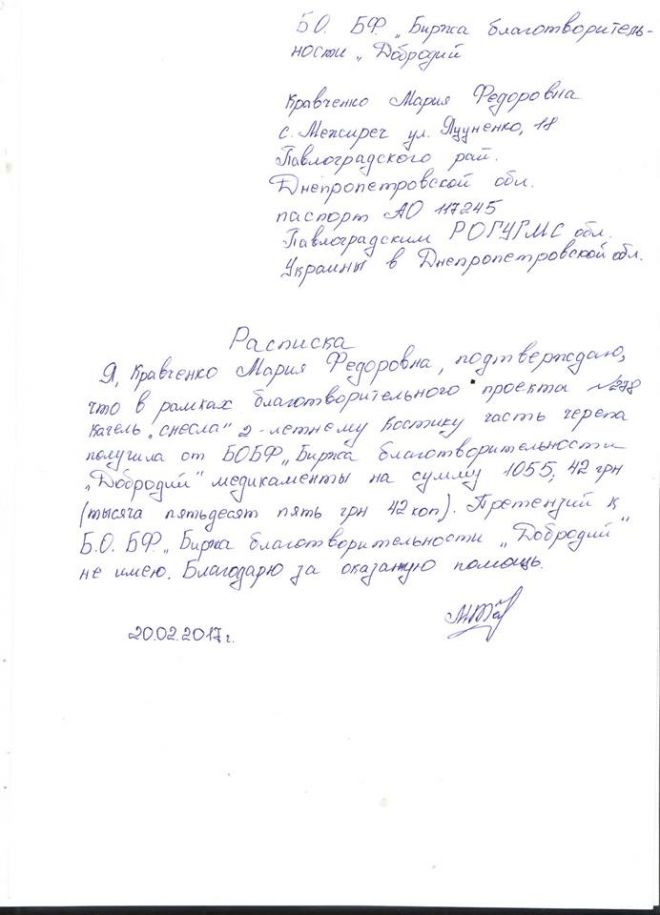 Б.О. БФ „Биржа благотворитель-
ности „Добродий
Кравченко Мария Федоровна
с. Межиреч ул. 18
Павлоградского рай.
Днепропетровской обл.
паспорт АО 117245
Павлоградским РОГУГМС обл.
Украины в Днепропетровской обл.
Расписка
Я, Кравченко Мария Федоровна, подтверждаю,
что в рамках благотворительного проекта №278
качель „снесла" 2-летнему Костику часть черепа
получила от БОБФ „Биржа благотворительности
„Добродий" медикаменты на сумму 1055,42 грн
(тысяча пятьдесят пять грн 42 коп). Претензий к
Б.О. БФ „Биржа благотворительности „Добродий"
не имею. Благодарю за оказаную помощь.
20.02.2017г.